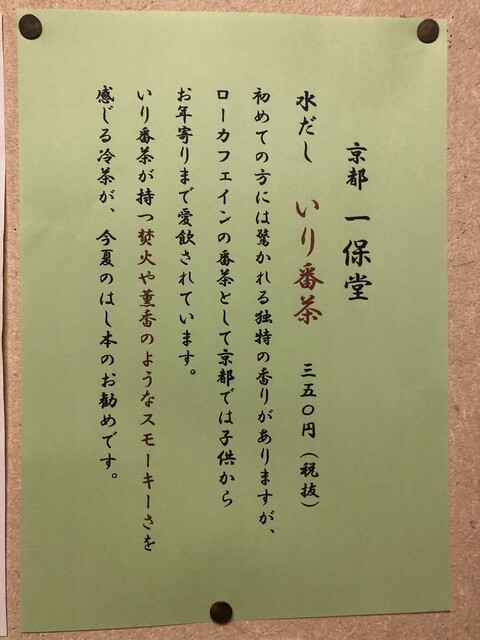 京都 一保堂
水だし いり番茶 三五〇円（税抜）
初めての方には驚かれる独特の香りがありますが、
ローカフェインの番茶として京都では子供から
お年寄りまで愛飲されています。
いり番茶が持つ焚火や薫香のようなスモーキーさを
感じる冷茶が、今夏のはし本のお勧めです。